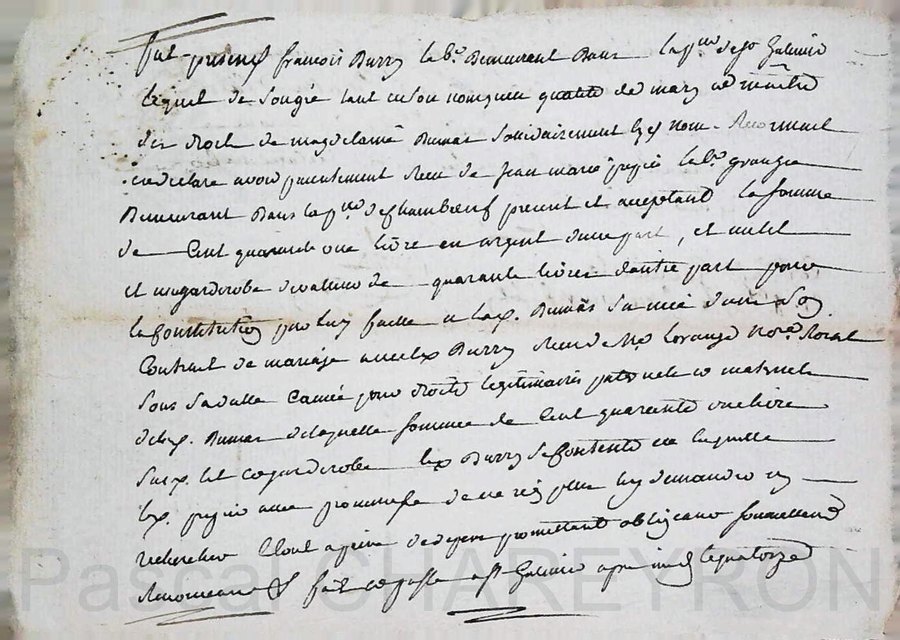 fut présent françois Burry lab.r Demeurant Dans la p.sse de s.t Galmier
lequel de son gré tant en son nom qu'en qualité de mary et maitre
des droits de magdelaine Dumas solidairement
declare avoir presentement Receu de Jean marie lab.r granger
Demeurant Dans la p.sse de Chambœuf present et acceptant la somme
de Cent quarante une livre en argent d'une part, et un lit
et un garderobe de valeur de quarante livres d'autre part pour
la Constitution par luy faitte a lad. Dumas sa dans son
Contrat de mariage avec led Burry Receu de M.e No.re Royal
sous sa datte pour droits legitimaires paternels et maternels
de lad. Dumas de laquelle somme de Cent quarante une livre
lit et garderobe led Burry se Contente en quitte
led. avec promesse de ne Rien plus luy demander ny
rechercher a peine de depens promettant obligeant soumettant
Renonceant & fait et passé a s.t Galmier apres midy le quatorze
Pascal CHAREYRON